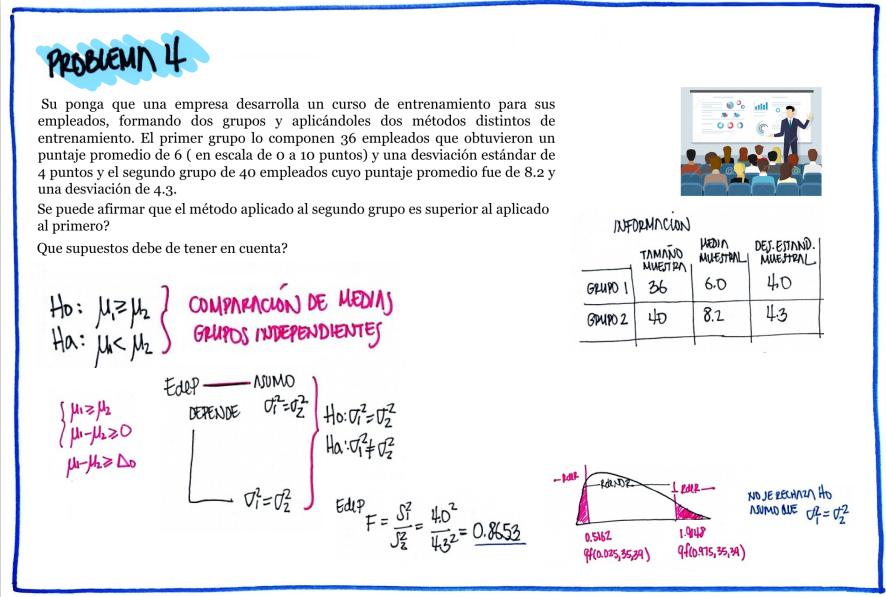 PROBLEMA 4
Su ponga que una empresa desarrolla un curso de entrenamiento para sus
empleados, formando dos grupos y aplicándoles dos métodos distintos de
entrenamiento. El primer grupo lo componen 36 empleados que obtuvieron un
puntaje promedio de 6 ( en escala de 0 a 10 puntos) y una desviación estándar de
4 puntos y el segundo grupo de 40 empleados cuyo puntaje promedio fue de 8.2 y
una desviación de 4.3.
Se puede afirmar que el método aplicado al segundo grupo es superior al aplicado
al primero?
Que supuestos debe de tener en cuenta?
INFORMACIÓN
TAMAÑO MUESTRA | MEDIA MUESTRAL | DES. ESTAND. MUESTRAL
GRUPO 1 | 36 | 6.0 | 4.0
GRUPO 2 | 40 | 8.2 | 4.3
Ho: μ₁≥μ₂
Ha: μ₁<μ₂
COMPARACIÓN DE MEDIAS
GRUPOS INDEPENDIENTES
μ1≥μ2
μ1-μ2≥0
μ1-μ2≥Δo
EdeP — ASUMO
DEPENDE σ₁²=σ₂²
σ₁²=σ₂²
Ho: σ₁²=σ₂²
Ha: σ₁²≠σ₂²
EdeP
F = S₁²/S₂² = 4.0²/4.3² = 0.8653
RdeR
RdeNoR
RdeR
0.5162
qf(0.025,35,39)
1.9148
qf(0.975,35,39)
NO SE RECHAZA Ho
ASUMO QUE σ₁²=σ₂²